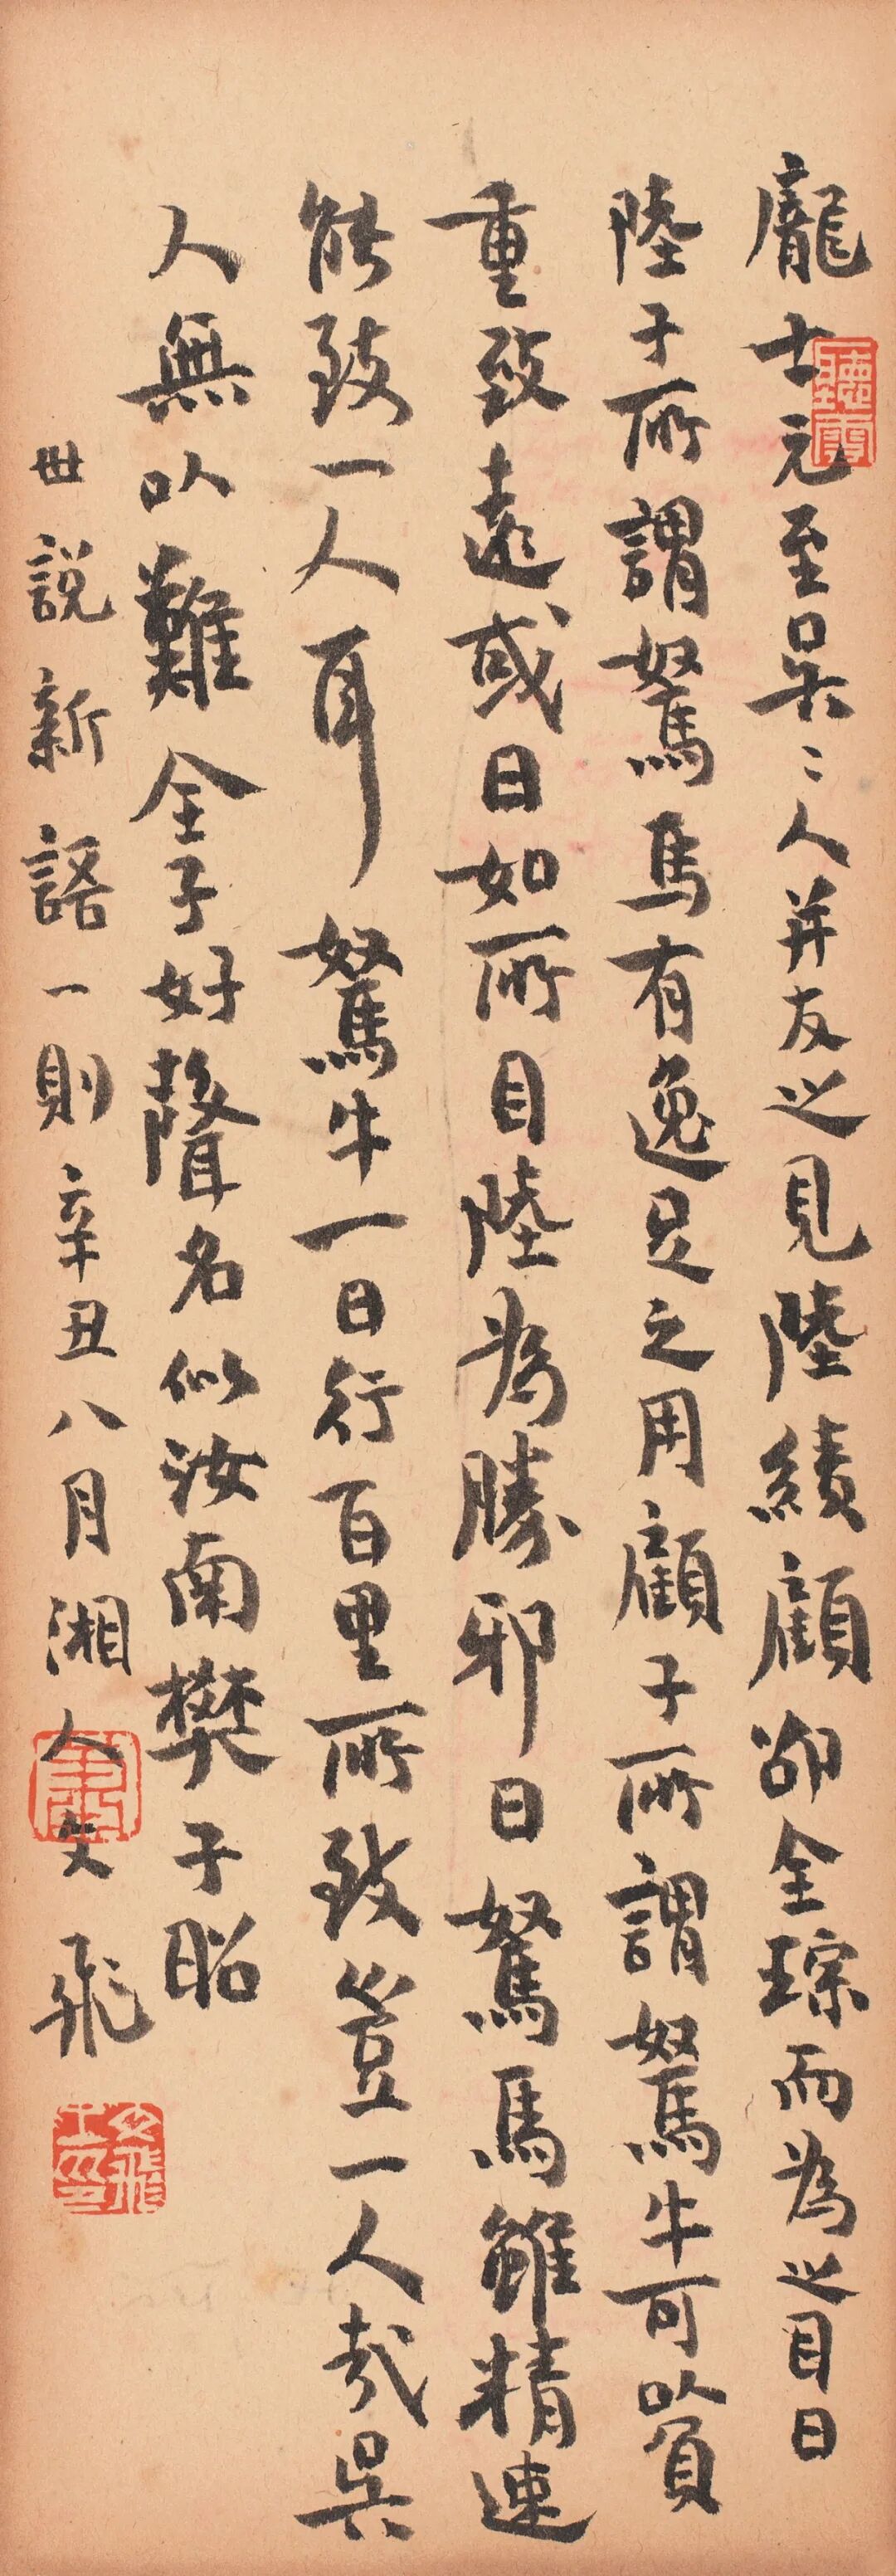 龐士元至吴〻人并友之見陸績顧邵全琮而為之目曰
陸子所謂駑馬有逸足之用顧子所謂駑牛可以負
重致遠或曰如所目陸為勝邪曰駑馬雖精速
能致一人耳駑牛一日行百里所致豈一人哉吴
人無以難全子好聲名似汝南樊子昭
世説新語一則辛丑八月湘人文飛
聽雪